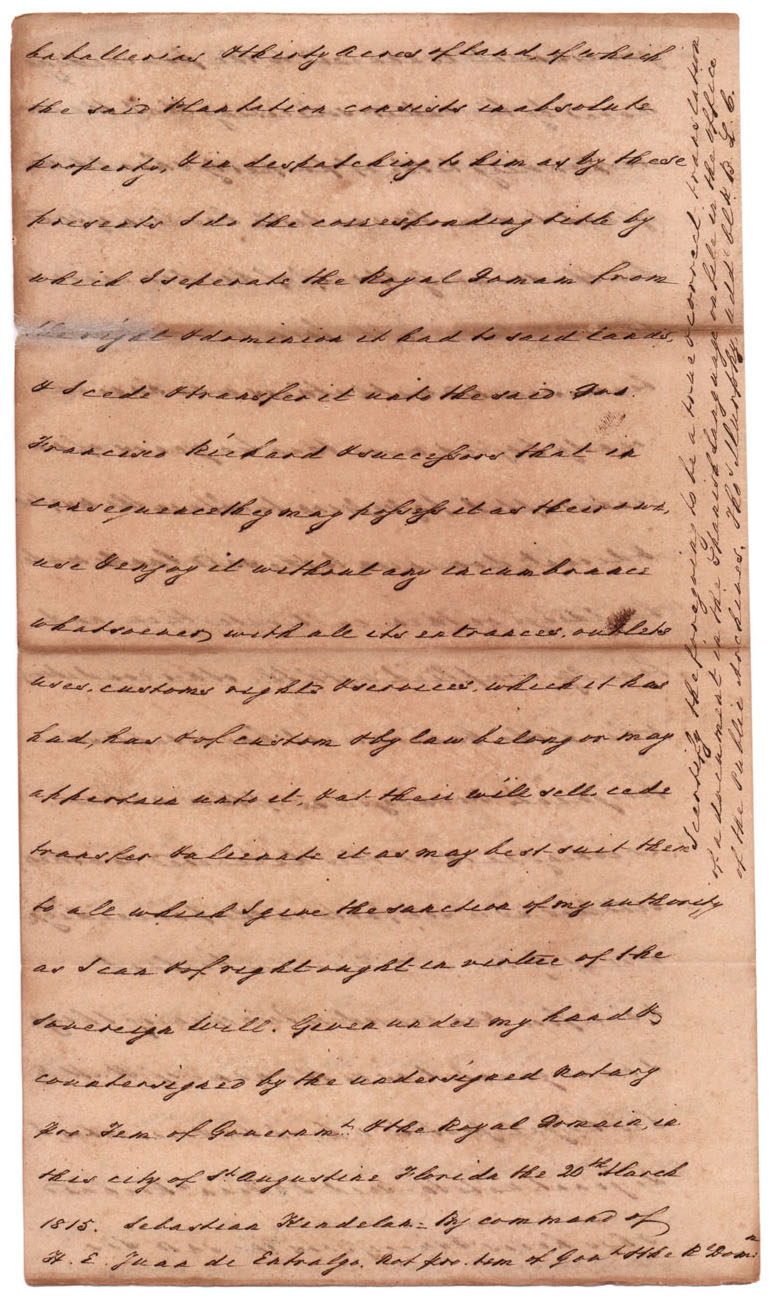 Caballerias & thirty Acres of land, of which
the said Plantation consists in absolute
property, & in despatching to him as by these
presents I do the corresponding title by
which I seperate the Royal Domain from
the right & dominion it had to said lands,
& I cede & transfer it unto the said Don
Francisco Richard & successors that in
consequence they may possess it as their own,
use & enjoy it without any incumbrance
whatsoever, with all its entrances, outlets
uses, customs rights & services, which it has
had, has & of custom & by law belong or may
appertain unto it, & at their will sell cede
transfer & alienate it as may best suit them
to all which I give the sanction of my authority
as I can & of right ought in virtue of the
sovereign Will. Given under my hand &
countersigned by the undersigned Notary
Pro Tem of Governmt. & the Royal Domain, in
this city of St. Augustine Florida the 20th March
1815. Sebastian Kindelan = By command of
H. E. Juan de Entralgo, Not. pro. tem of Govt. & the Rl. Domn.
I certify the foregoing to be a true & correct translation
of a document in the Spanish language on file in the office
of the public Archives. Thos. Murphy, add. Clk B. L. C.